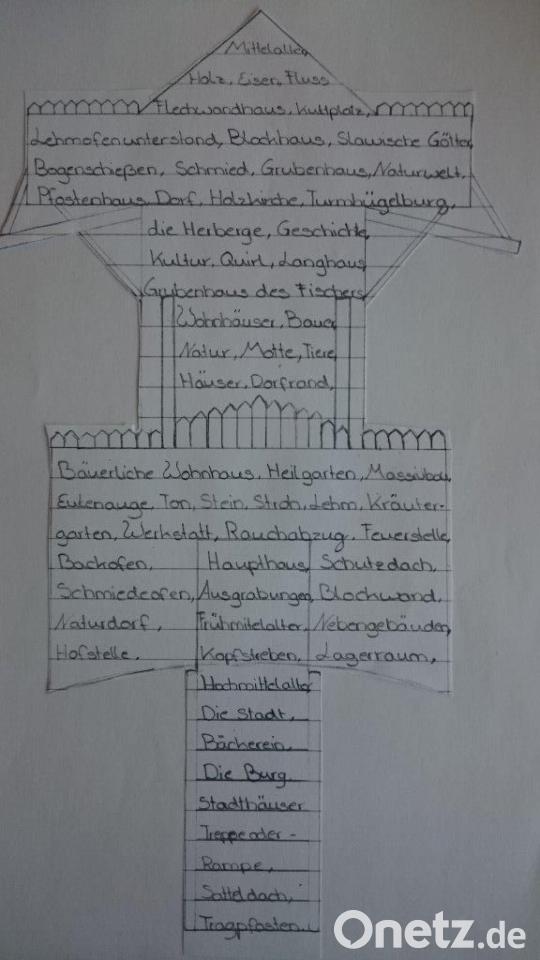 Mittelalter,
Holz, Eisen, Fluss
Flechwandhaus, Kultplatz,
Lehmofenunterstand, Blockhaus, Slawische Götter,
Bogenschießen, Schmied, Grubenhaus, Naturwelt,
Pfostenhaus, Dorf, Holzkirche, Turmhügelburg,
die Herberge, Geschichte,
Kultur, Quirl, Langhaus,
Grubenhaus des Fischers,
Wohnhäuser, Bauer,
Natur, Motte, Tiere,
Häuser, Dorfrand,
Bäuerliche Wohnhaus, Heilgarten, Massivbau,
Eulenauge, Ton, Stein, Stroh, Lehm, Kräuter-
garten, Werkstatt, Rauchabzug, Feuerstelle,
Backofen, Haupthaus, Schutzdach,
Schmiedeofen, Ausgrabungen, Blockwand,
Naturdorf, Frühmitelalter, Nebengebäuden,
Hofstelle, Kopfstreben, Lagerraum,
Hochmittelalter
Die Stadt,
Bächerein,
Die Burg,
Stadthäuser
Treppe oder -
Rampe,
Satteldach,
Tragpfosten.
Onetz.de